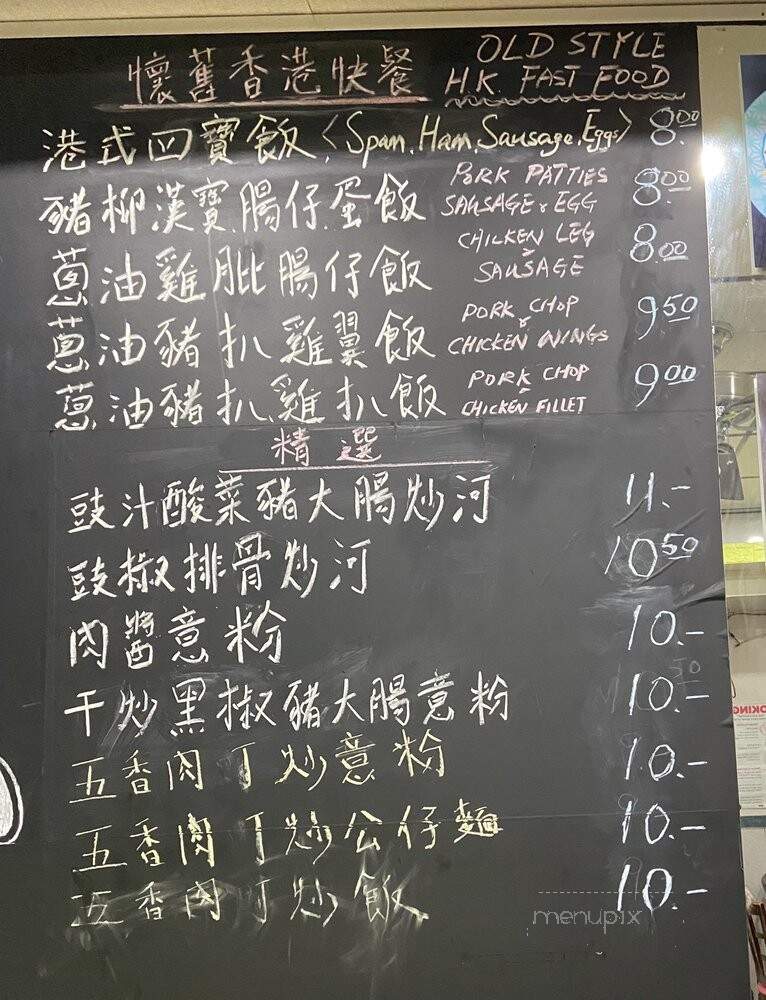 懷舊香港快餐 OLD STYLE
H.K. FAST FOOD
港式四寶飯 (Span, Ham, Sausage, Eggs) 8.00
豬柳漢寶腸仔蛋飯 PORK PATTIES
SAUSAGE & EGG 8.00
蔥油雞肶腸仔飯 CHICKEN LEG
&
SAUSAGE 8.00
蔥油豬扒雞翼飯 PORK CHOP
&
CHICKEN WINGS 9.50
蔥油豬扒雞扒飯 PORK CHOP
&
CHICKEN FILLET 9.00
精選
豉汁酸菜豬大腸炒河 11.-
豉椒排骨炒河 10.50
肉醬意粉 10.-
干炒黑椒豬大腸意粉 10.-
五香肉丁炒意粉 10.-
五香肉丁炒公仔麵 10.-
五香肉丁炒飯 10.-
menupix